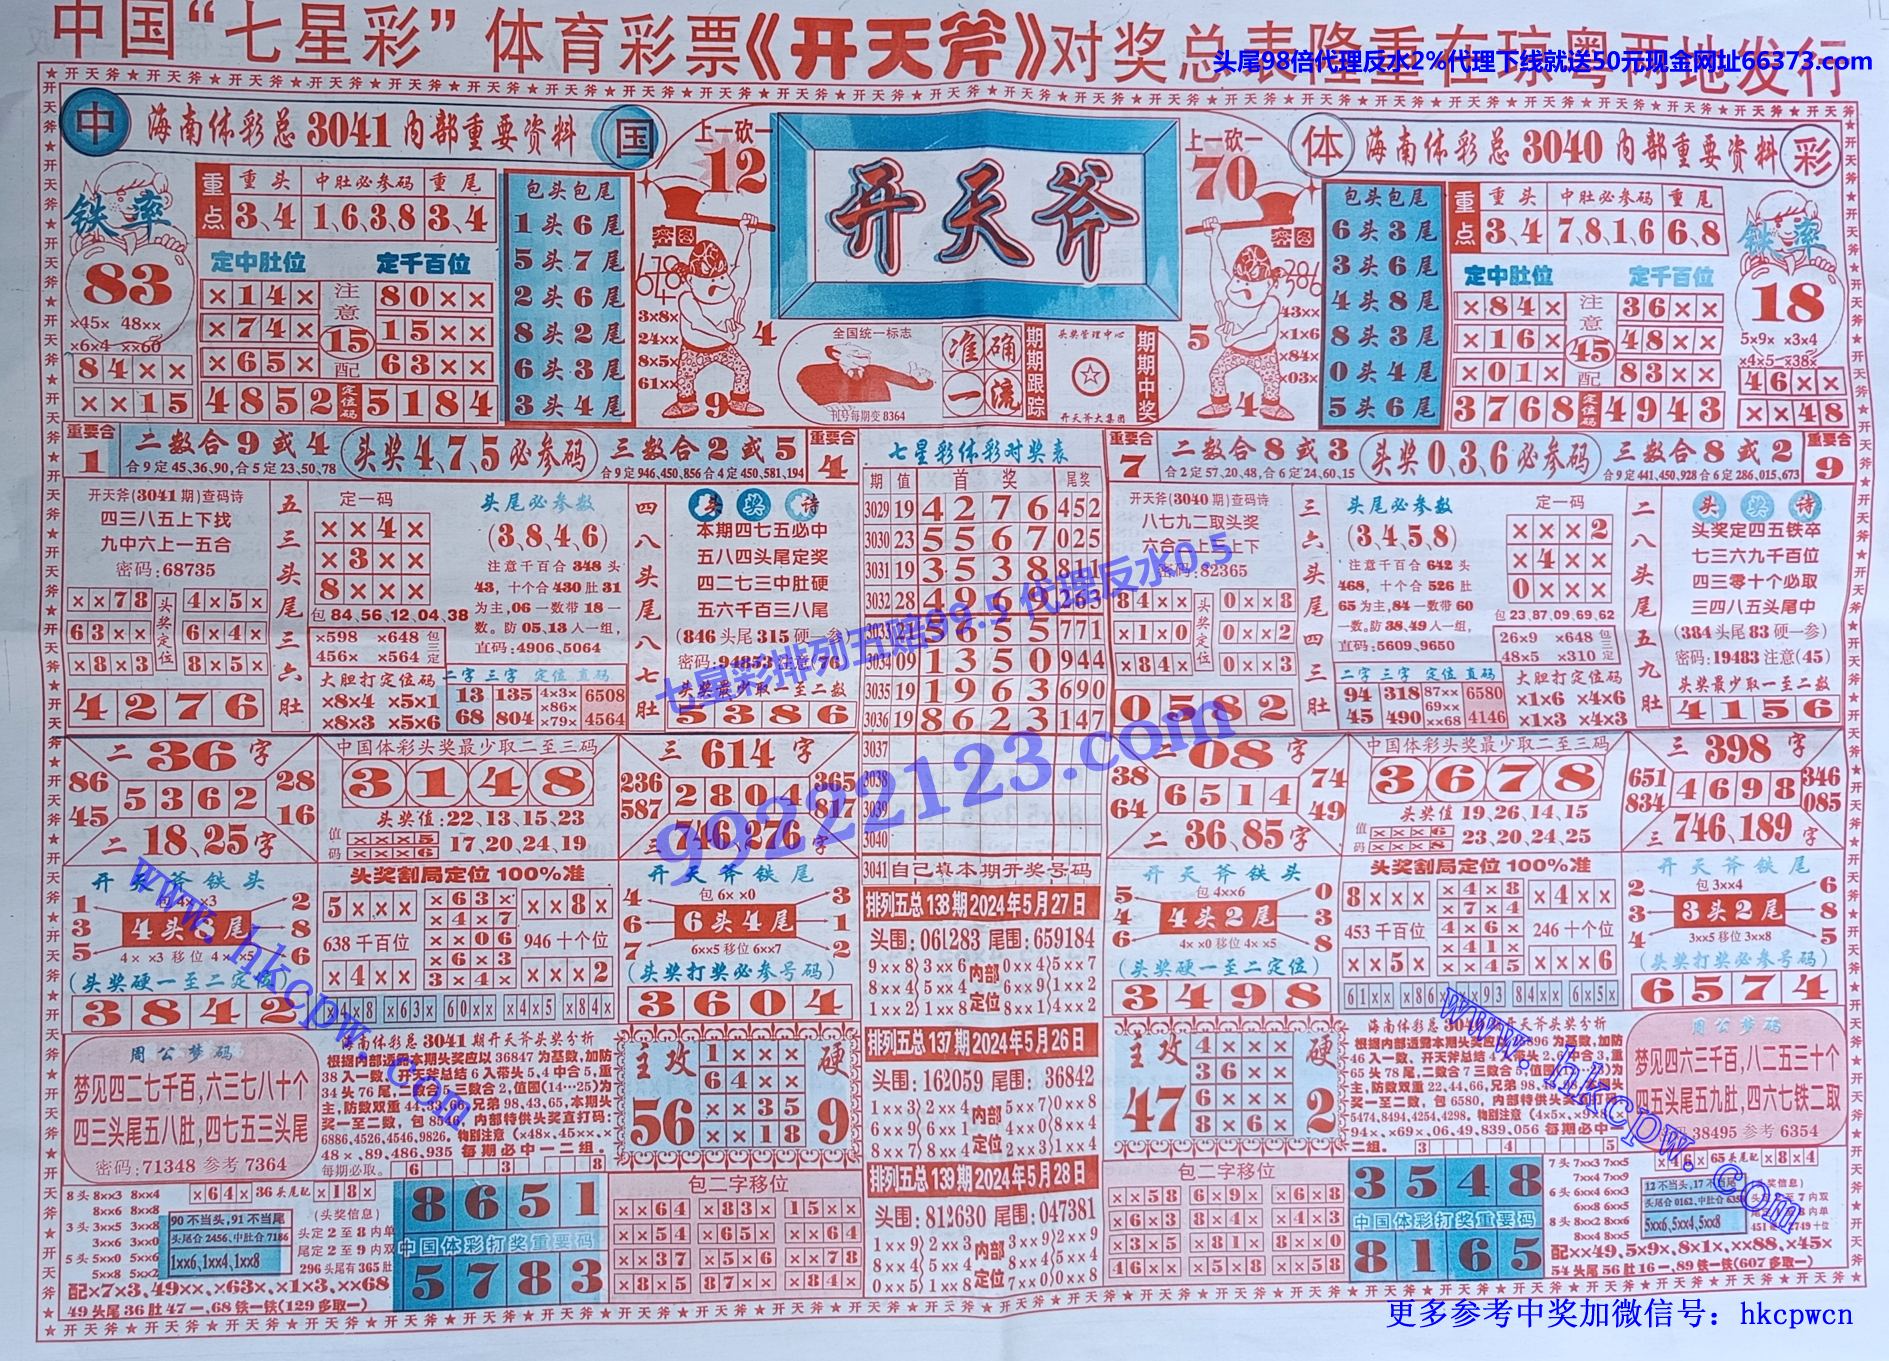 中国“七星彩”体育彩票《开天斧》对奖总表隆重在琼粤两地发行
头尾98倍代理反水2%代理下线就送50元现金网址66373.com
中 海南体彩总3041内部重要资料 国
上一砍一 12
开天斧
上一砍一 70
体 海南体彩总3040内部重要资料 彩
铁率 83
×45× 48××
×6×4 ××60
84××
××15
重点 重头 中肚必参码 重尾
3、4 1、6、3、8 3、4
定中肚位 定千百位
×14× 注意 80××
×74× 15 15××
×65× 配 63××
4852 定位码 5184
包头包尾
1头6尾
5头7尾
2头6尾
8头2尾
6头3尾
3头4尾
密图 678
3×8×
24××
8×5×
61××
4
9
全国统一标志
刊号每期变8364
准确一流
期期跟踪
头奖管理中心
开天斧大集团
期期中奖
密图
43××
×1×6
×84×
×03×
5
4
包头包尾
6头3尾
3头6尾
4头8尾
8头3尾
0头4尾
5头6尾
重点 重头 中肚必参码 重尾
3、4 7、8、1、6 6、8
定中肚位 定千百位
×84× 注意 36××
×16× 45 48××
×01× 配 83××
3768 定位码 4943
铁率 18
5×9× ×3×4
×4×5 ×38×
46××
××48
重要合 1
二数合9或4
合9定45、36、90,合5定23、50、78
头奖4、7、5必参码
三数合2或5
合9定946、450、856合4定450、581、194
重要合 4
重要合 7
二数合8或3
合2定57、20、48,合6定24、60、15
头奖0、3、6必参码
三数合8或2
合9定441、450、928合6定286、015、673
重要合 9
开天斧(3041期)查码诗
四三八五上下找
九中六上一五合
密码:68735
××78 头奖定位 4×5×
63×× 6×4×
×8×3 8×5×
4276
五三头尾三六肚
定一码
××4×
×3××
8×××
包84、56、12、04、38
×598 ×648
456× ×564
包三定
大胆打定位码
×8×4 ×5×1
×8×3 ×5×6
头尾必参数
(3、8、4、6)
注意千百合348头
43,十个合430肚31
为主,06一数带18一
数。防05、13人一组,
直码:4906、5064
二字 三字 定位 直码
13 135 4×3× 6508
×86×
68 804 ×79× 4564
四八头尾八七肚
头奖诗
本期四七五必中
五八四头尾定奖
四二七三中肚硬
五六千百三八尾
(846头尾315硬一参)
密码:94853注意(76)
头奖最少取一至二数
5386
七星彩体彩对奖表
期 值 首奖 尾奖
3029 19 4276 452
3030 23 5567 025
3031 19 3538 811
3032 28 4969 263
3033 21 5655 771
3034 09 1350 944
3035 19 1963 690
3036 19 8623 147
3037
3038
3039
3040
3041 自己填本期开奖号码
开天斧(3040期)查码诗
八七九二取头奖
六合二上三上下
密码:82365
84×× 头奖定位 0××8
×1×0 0××2
×84× 0××3
0582
三六头尾四三肚
头尾必参数
(3、4、5、8)
注意千百合642头
468,十个合526肚
65为主,84一数带60
一数。防38、49人一组,
直码:5609、9650
二字 三字 定位 直码
94 318 87×× 6580
69××
45 490 ××68 4146
定一码
×××2
×4××
0×××
包23、87、09、69、62
26×9 ×648
48×5 ×310
包三定
大胆打定位码
×1×6 ×4×6
×1×3 ×4×3
二八头尾五九肚
头奖诗
头奖定四五铁卒
七三六九千百位
四三零十个必取
三四八五头尾中
(384头尾83硬一参)
密码:19483注意(45)
头奖最少取一至二数
4156
七星彩排列五赔99.5 代理反水0.5
99222123.com
二 36 字
86 28
5362
45 16
二 18、25 字
中国体彩头奖最少取二至三码
3148
头奖值:22、13、15、23
值码 ×××5
×××6 17、20、24、19
三 614 字
236 365
587 2804 817
三 746、276 字
二 08 字
38 74
6514
64 49
二 36、85 字
中国体彩头奖最少取二至三码
3678
头奖值19、26、14、15
值码 ×××6
×××8 23、20、24、25
三 398 字
651 346
834 4698 085
三 746、189 字
开天斧铁头
1 2
3 4头8尾 8
5 6
(头奖硬一至二定位)
3842
头奖割局定位100%准
5××× ×63× ××8×
×4×7
638千百位 ××06 946十个位
×6×3
×4×× 3×4× ×××2
×63× 60×× ×4×5 ×84×
开天斧铁尾
包6× ×0
4 3
6 6头4尾 1
7 2
6××5移位6××7
(头奖打奖必参号码)
3604
排列五总138期2024年5月27日
头围:061283 尾围:659184
9××8 3××6 内部 0××4 5××7
8××4 5××4 6××9 1××2
0××2 1××8 定位 8××1 4××2
排列五总137期2024年5月26日
头围:162059 尾围:36842
1××3 2××4 内部 5××7 0××8
6××9 6××1 4××0 8××4
8××7 8××4 定位 2××3 1××4
排列五总139期2024年5月28日
头围:812630 尾围:047381
1××9 2××3 内部 3××9 2××9
8××4 5××4 8××4 5××4
0××5 1××8 定位 7××0 0××8
开天斧铁头
包4××6
5 0
4 4头2尾 3
6 8
4× ×0移位4× ×5
(头奖硬一至二定位)
3498
头奖割局定位100%准
8××× ×4×8 ×4××
×7×4
453千百位 ×4×6× 246十个位
×41×
××5× ××45 ×××6
61×× ×86× ××93 84×× 6×5×
开天斧铁尾
包3××4
2 6
3 3头2尾 8
4 5
3××5移位3××8
(头奖打奖必参号码)
6574
周公梦码
梦见四二七千百,六三七八十个
四三头尾五八肚,四七五三头尾
密码:71348 参考7364
海南体彩总3041期开天斧头奖分析
根据内部透露本期头奖应以36847为基数,加防
38入一数、开天斧总结6入带5、4中合5,重
34头76尾,二数合5三数合2,值围(14…25)为
主,防数双重44、33、66、兄弟98、43、65、本期头
6886,4526,4546,9826,特别注意(×48×、45××、×
48×、89、486、935 每期必中一二组。
每期必取。 6 3 8
主攻 硬
1×××
64××
56 ××35 9
××18
主攻 硬
4×××
36××
47 6××× 2
8×6×
周公梦码
梦见四六三千百,八二五三十个
四五头尾五九肚,四六七铁二取
38495 参考6354
8头8××3 8××4
8××6 8××8
3头3××5 3××8
3××6 3××0
5头5××0 5××6
5××8 5××2
×64× 36头尾配 ×18×
90不当头,91不当尾
头尾合2456、中肚合7186
1××6、1××4、1××8
(头奖信息)
头定2至8内单
尾定2至9内双
296头尾有365肚
配×7×3、49××、×63×、×1×3、××68
49头尾36肚47一、68铁一铁(129多取一)
8651
中国体彩打奖重要码
5783
包二字移位
××64 ×83× 15××
××54 ×65× ××64
××37 ×5×6 ××78
×8×5 87×× ×84×
包二字移位
××58 6×9× ×6×8
×6×3 8×4× ×4×3
×3×5 ×81× 8××0
46×× ×5×8 ×58×
3548
中国体彩打奖重要码
8165
7头7××3 7××5
7××4 7××9
6头6××4 6××3
6××8 6××5
8头8××2 8××6
8××5 8××5
×46× 65头尾配 ×8×4
5××6、5××4、5××8
配××49、5×9×、8×1×、××88、×45×
54头尾56肚16一、89铁一铁(607多取一)
www.hkcpw.com
www.hkcpw.com
更多参考中奖加微信号：hkcpwcn